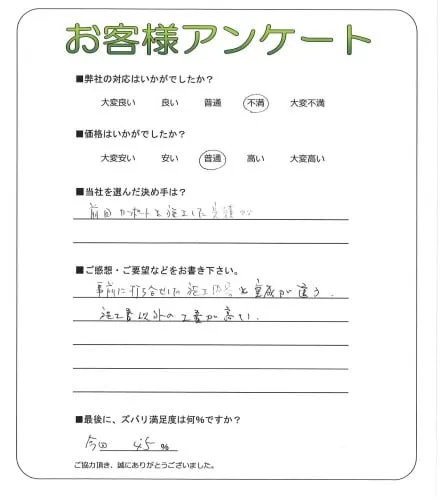 お客様アンケート
■弊社の対応はいかがでしたか？
大変良い 良い 普通 不満 大変不満
■価格はいかがでしたか？
大変安い 安い 普通 高い 大変高い
■当社を選んだ決め手は？
前回カーポートを施工した実績から
■ご感想・ご要望などをお書き下さい。
事前に打ち合せした施工内容と が違う。
施工費以外の工費が高い。
■最後に、ズバリ満足度は何％ですか？
今回 45%
ご協力頂き、誠にありがとうございました。